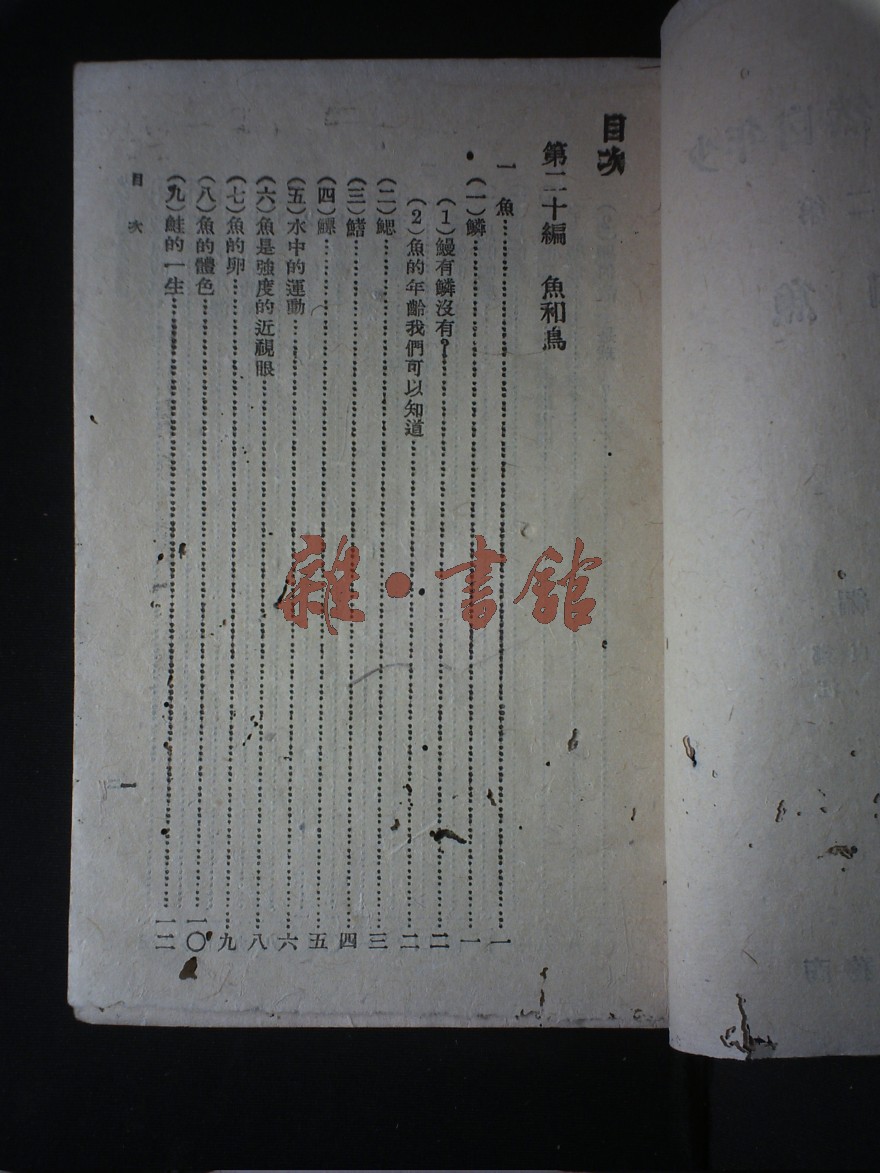 目次
第二十編　魚和鳥
一　魚……一
(一)鱗……一
(1)鰻有鱗沒有？……二
(2)魚的年齡我們可以知道……二
(二)鰓……三
(三)鰭……四
(四)鰾……五
(五)水中的運動……六
(六)魚是強度的近視眼……八
(七)魚的卵……九
(八)魚的體色……一〇
(九)鮭的一生……一二
目次
一
雜·書館